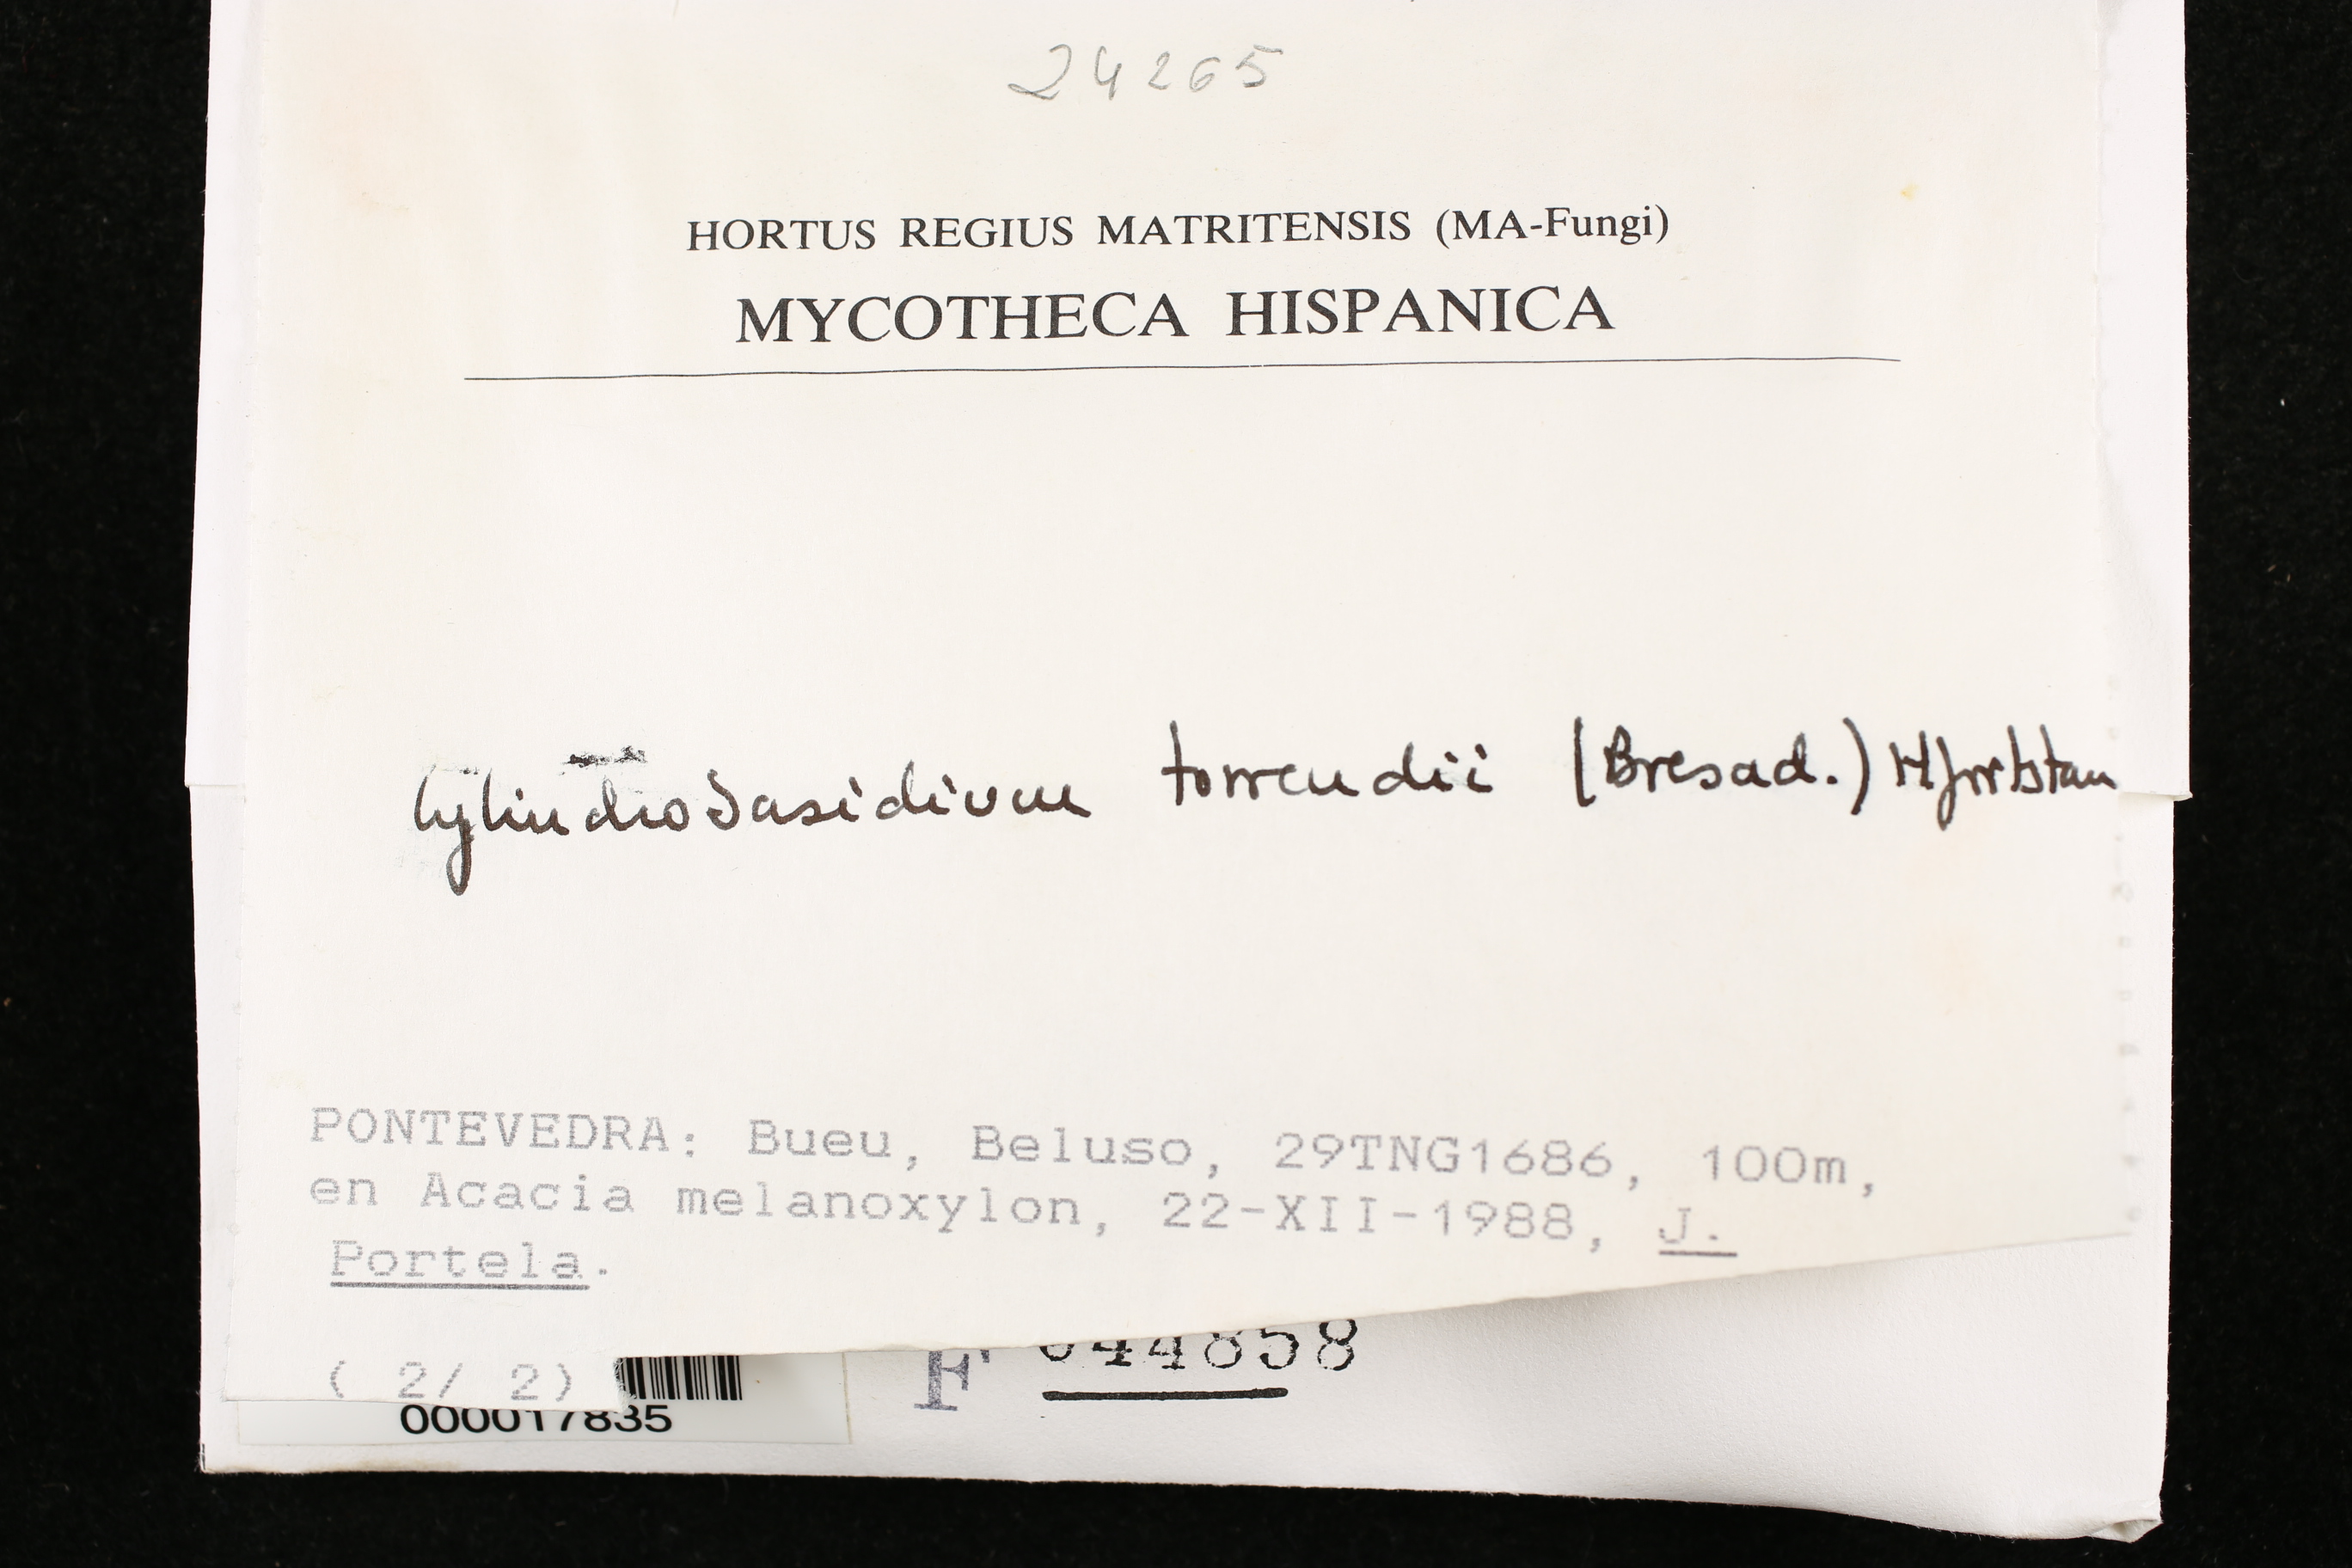 24265
HORTUS REGIUS MATRITENSIS (MA-Fungi)
MYCOTHECA HISPANICA
Cylindrobasidium torrendii (Bresad.) Hjortstam
PONTEVEDRA: Bueu, Beluso, 29TNG1686, 100m,
en Acacia melanoxylon, 22-XII-1988, J.
Portela.
( 2/ 2)
F 044858
000017835